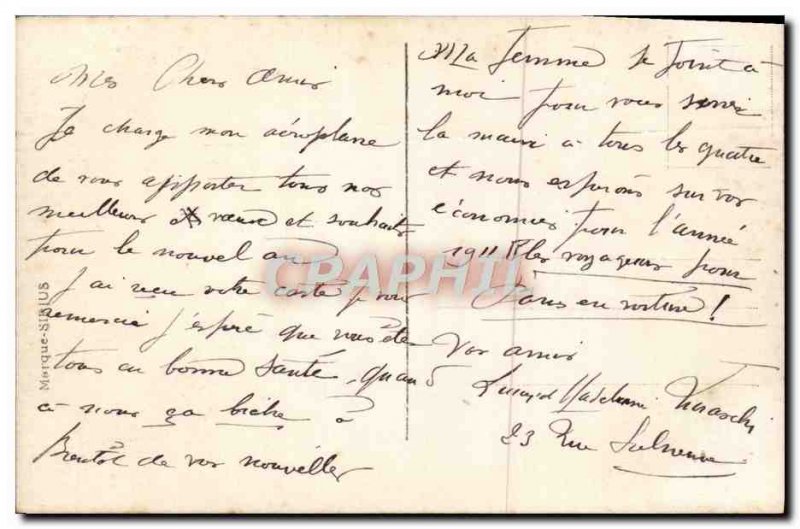 Mes Chers Amis
Je charge mon aéroplane
de vous apporter tous nos
meilleurs voeux et souhaits
pour le nouvel an
J'ai reçu votre carte vous
remercie j'espère que vous ete
tous en bonne santé, quan
à nous ça biche ?
Bientôt de vos nouvelles
Ma femme se joint à
moi pour vous serrer
la main à tous les quatre
et nous espérons sur vos
économies pour l'année
1911 les voyageurs pour
Paris en voiture !
Vos amis
23 Rue
Marque-SIRIUS
CPAPHIL